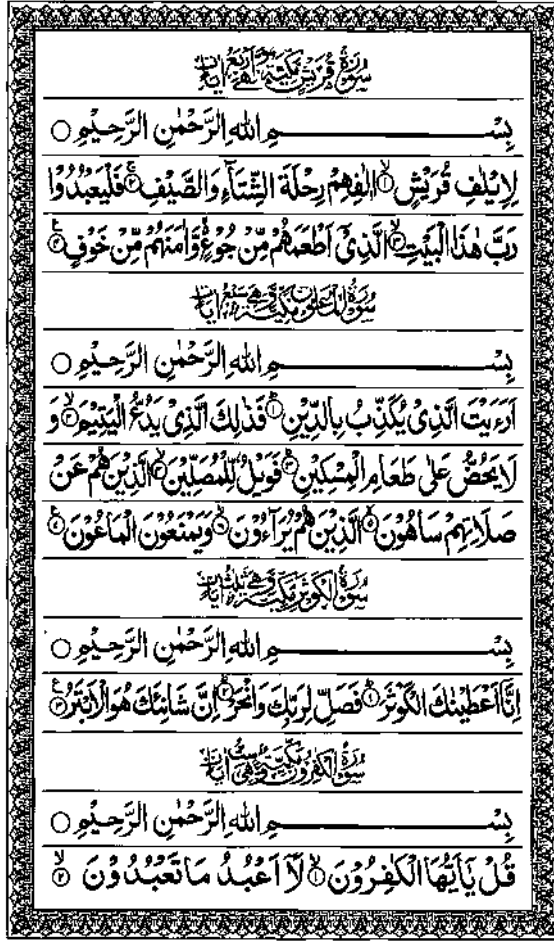 سُوْرَةُ قُرَيْشٍ مَّكِّيَّةٌ وَّهِيَ اَرْبَعُ اٰيَاتٍ
بِسْمِ اللهِ الرَّحْمٰنِ الرَّحِيْمِ ○
لِاِيْلٰفِ قُرَيْشٍ ۙ﴿۱﴾ اٖلٰفِهِمْ رِحْلَةَ الشِّتَآءِ وَالصَّيْفِ ۚ﴿۲﴾ فَلْيَعْبُدُوْا
رَبَّ هٰذَا الْبَيْتِ ۙ﴿۳﴾ الَّذِیْۤ اَطْعَمَهُمْ مِّنْ جُوْعٍ ۙ وَّاٰمَنَهُمْ مِّنْ خَوْفٍ ﴿۴﴾
سُوْرَةُ الْمَاعُوْنَ مَكِّيَّةٌ وَّهِيَ سَبْعُ اٰيَاتٍ
بِسْمِ اللهِ الرَّحْمٰنِ الرَّحِيْمِ ○
اَرَءَيْتَ الَّذِیْ يُكَذِّبُ بِالدِّيْنِ ؕ﴿۱﴾ فَذٰلِكَ الَّذِیْ يَدُعُّ الْيَتِيْمَ ۙ﴿۲﴾ وَ
لَا يَحُضُّ عَلٰى طَعَامِ الْمِسْكِيْنِ ؕ﴿۳﴾ فَوَيْلٌ لِّلْمُصَلِّيْنَ ۙ﴿۴﴾ الَّذِيْنَ هُمْ عَنْ
صَلَاتِهِمْ سَاهُوْنَ ۙ﴿۵﴾ الَّذِيْنَ هُمْ يُرَآءُوْنَ ۙ﴿۶﴾ وَيَمْنَعُوْنَ الْمَاعُوْنَ ﴿۷﴾
سُوْرَةُ الْكَوْثَرِ مَكِّيَّةٌ وَّهِيَ ثَلٰثُ اٰيَاتٍ
بِسْمِ اللهِ الرَّحْمٰنِ الرَّحِيْمِ ○
اِنَّاۤ اَعْطَيْنٰكَ الْكَوْثَرَ ؕ﴿۱﴾ فَصَلِّ لِرَبِّكَ وَانْحَرْ ؕ﴿۲﴾ اِنَّ شَانِئَكَ هُوَ الْاَبْتَرُ ﴿۳﴾
سُوْرَةُ الْكٰفِرُوْنَ مَكِّيَّةٌ وَّهِيَ سِتُّ اٰيَاتٍ
بِسْمِ اللهِ الرَّحْمٰنِ الرَّحِيْمِ ○
قُلْ يٰۤاَيُّهَا الْكٰفِرُوْنَ ۙ﴿۱﴾ لَاۤ اَعْبُدُ مَا تَعْبُدُوْنَ ۙ﴿۲﴾